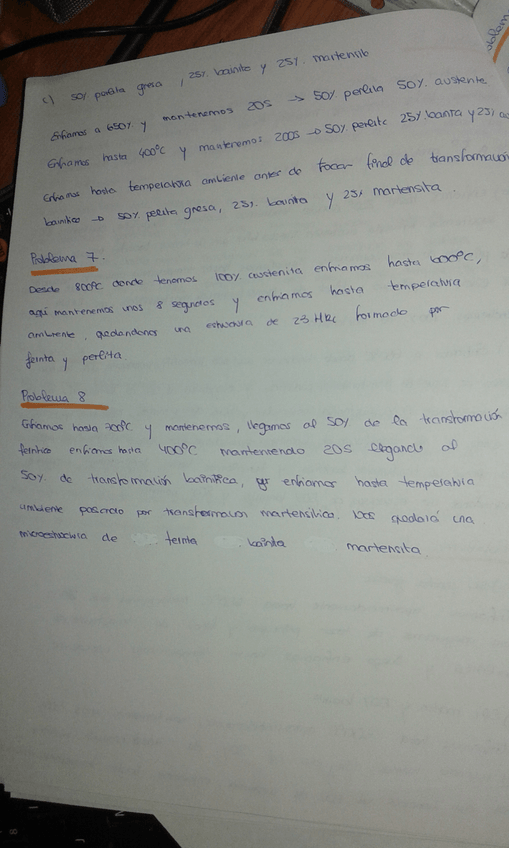 c) 50% perlita gresa, 25% bainita y 25% martensita
Enfriamos a 650% y mantenemos 20s → 50% perlita 50% austenita
Enfriamos hasta 400ºC y mantenemos 200s → 50% perlita 25% bainita y 25%
Enfriamos hasta temperatura ambiente antes de tocar final de transformación
bainitica → 50% perlita gresa, 25% bainita y 25% martensita.
Problema 7.
Desde 800ºC donde tenemos 100% austenita enfriamos hasta 600ºC,
aqui mantenemos unos 8 segundos y enfriamos hasta temperatura
ambiente, quedandonos una estructura de 23 HRc formado por
ferrita y perlita
Problema 8
Enfriamos hasta 700ºC y mantenemos, llegamos al 50% de la transformación
ferritica enfriamos hasta 400ºC manteniendo 20s llegando al
50% de transformación bainítica, y enfriamos hasta temperatura
ambiente pasando por transformacion martensitica. Nos quedará una
microestructura de ferrita bainita martensita.